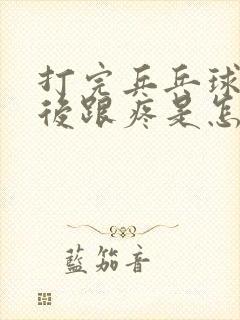 打完乒乓球
後跟疼是怎
藍笳音